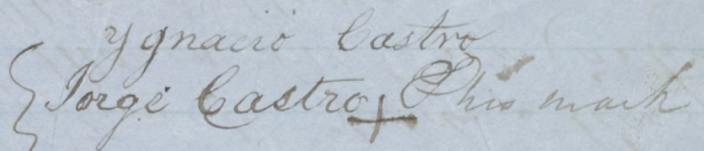 Ygnacio Castro
Jorge Castro + his mark